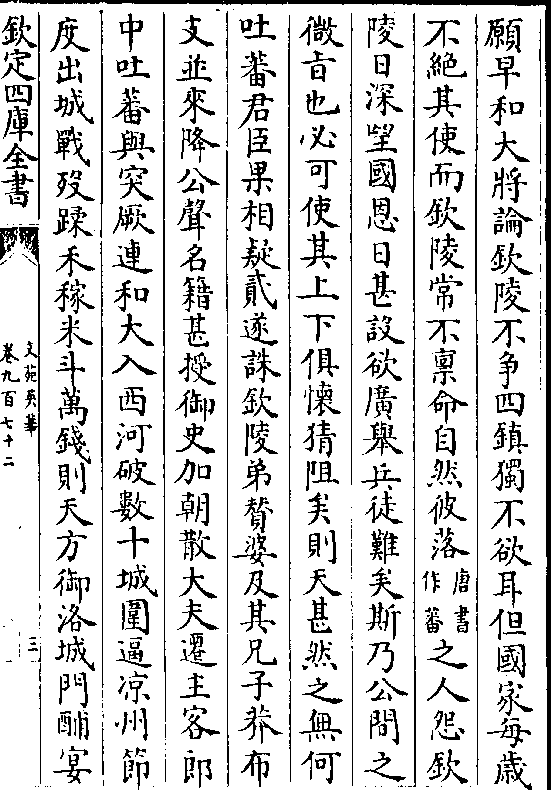 願早和大將論欽陵不争四鎮獨不欲耳但國家每歲
不絕其使而欽陵常不禀命自然彼落唐書作蕃之人怨欽
陵日深望國恩日甚設欲廣舉兵徒難矣斯乃公間之
微㫖也必可使其上下俱懷猜阻矣則天甚然之無何
吐蕃君臣果相疑貳遂誅欽陵弟贊婆及其兄子莽布
支並來降公聲名籍甚授御史加朝散大夫遷主客郎
中吐蕃與突厥連和大入西河破數十城圍逼凉州節
度出城戰歿蹂禾稼米斗萬錢則天方御洛城門酺宴
欽定四庫全書
文苑英華
卷九百七十二
三